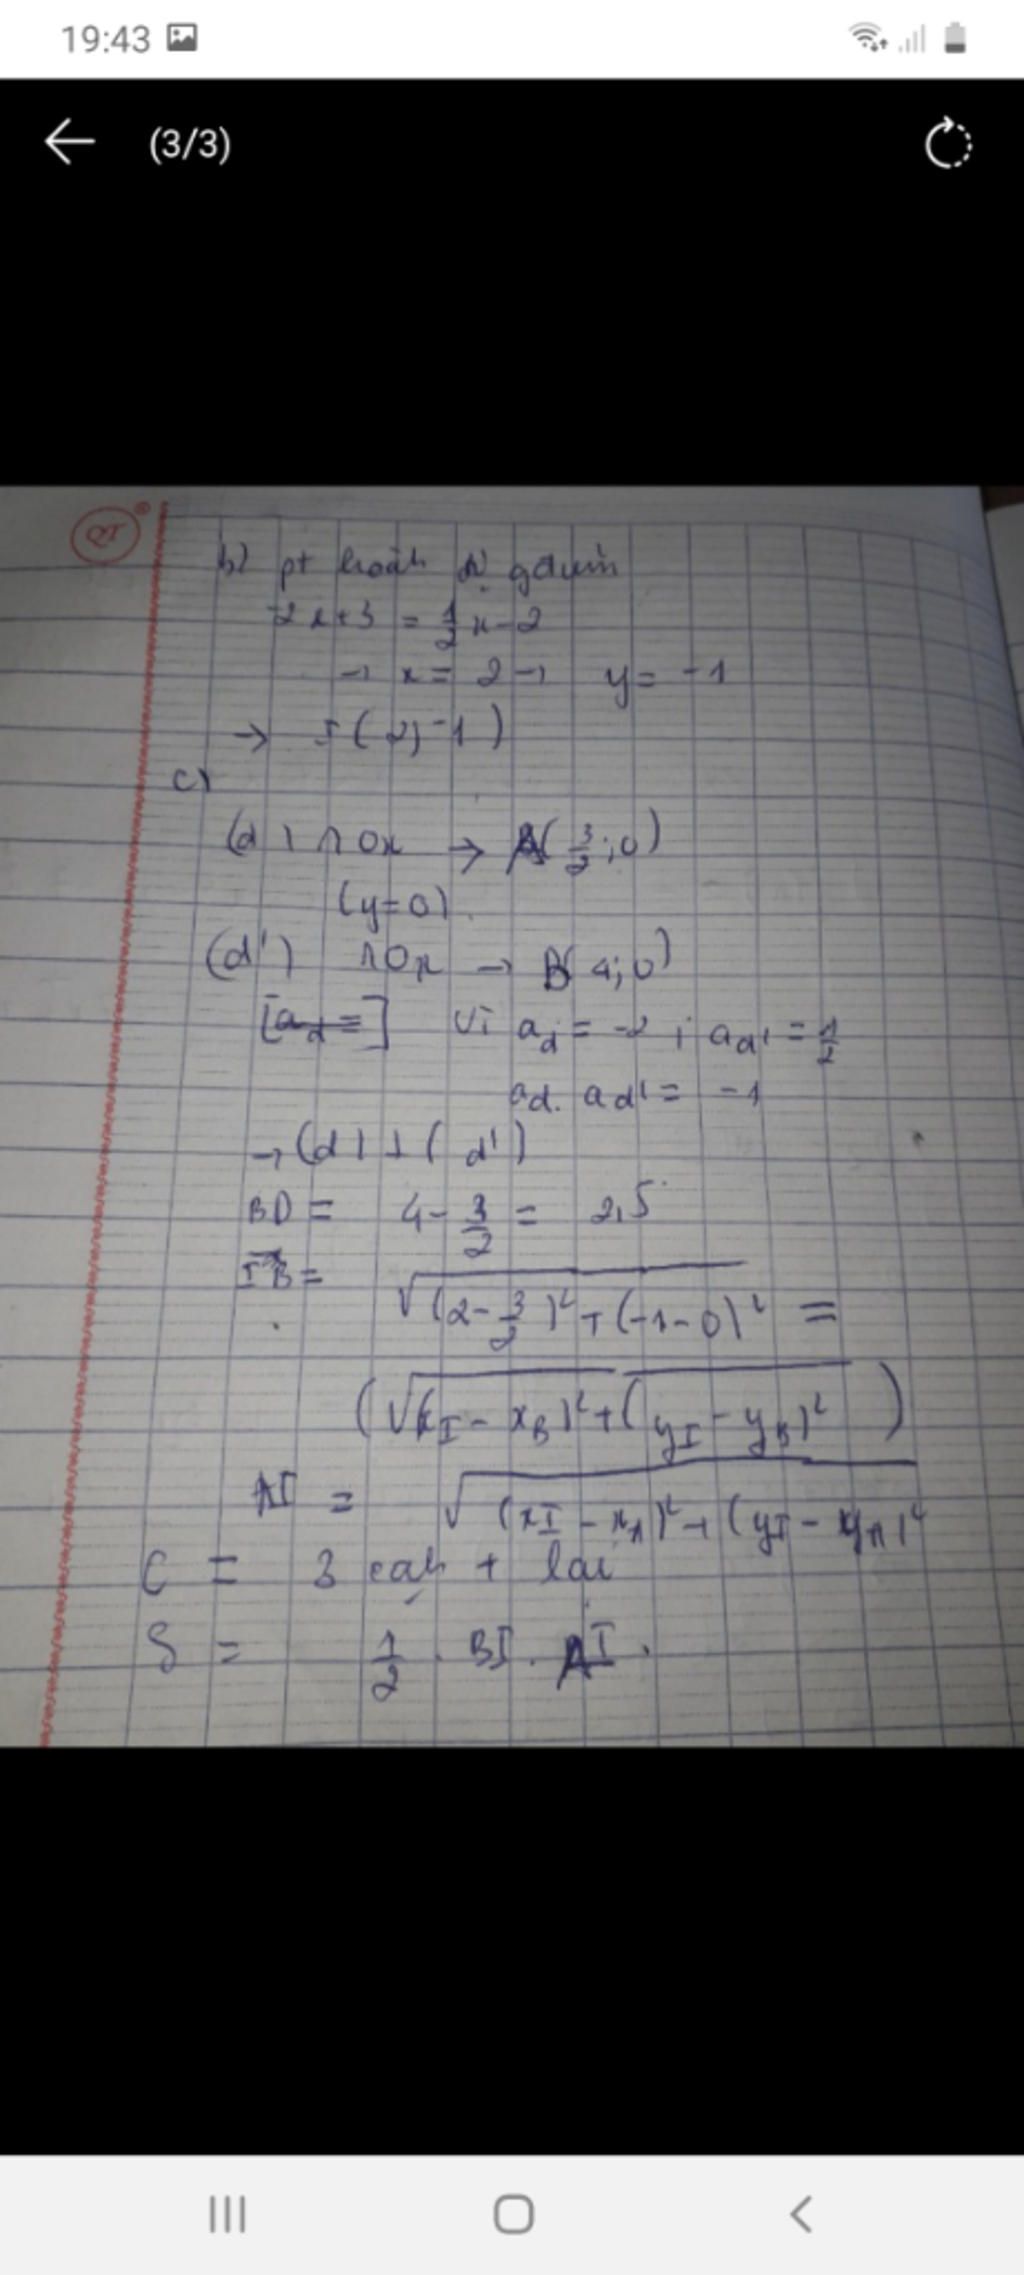 19:43
(3/3)
b) pt hoành độ gđiểm
-2x+3 = 1/2 x-2
→ x = 2 → y = -1
→ I(2;-1)
c)
(d) ∩ Ox → A(3/2;0)
(y=0)
(d') ∩ Ox → B(4;0)
[a_d =] Vì a_d = -2 ; a_d' = 1/2
a_d. a_d' = -1
→ (d) ⊥ (d')
BD = 4 - 3/2 = 2,5
IB =
√(2-3/2)²+(-1-0)² =
(√(x_I - x_B)²+(y_I - y_B)²)
AI = √(x_I - x_A)²+(y_I - y_A)²
C = 3 cạh + lại
S = 1/2 . BI . AI .